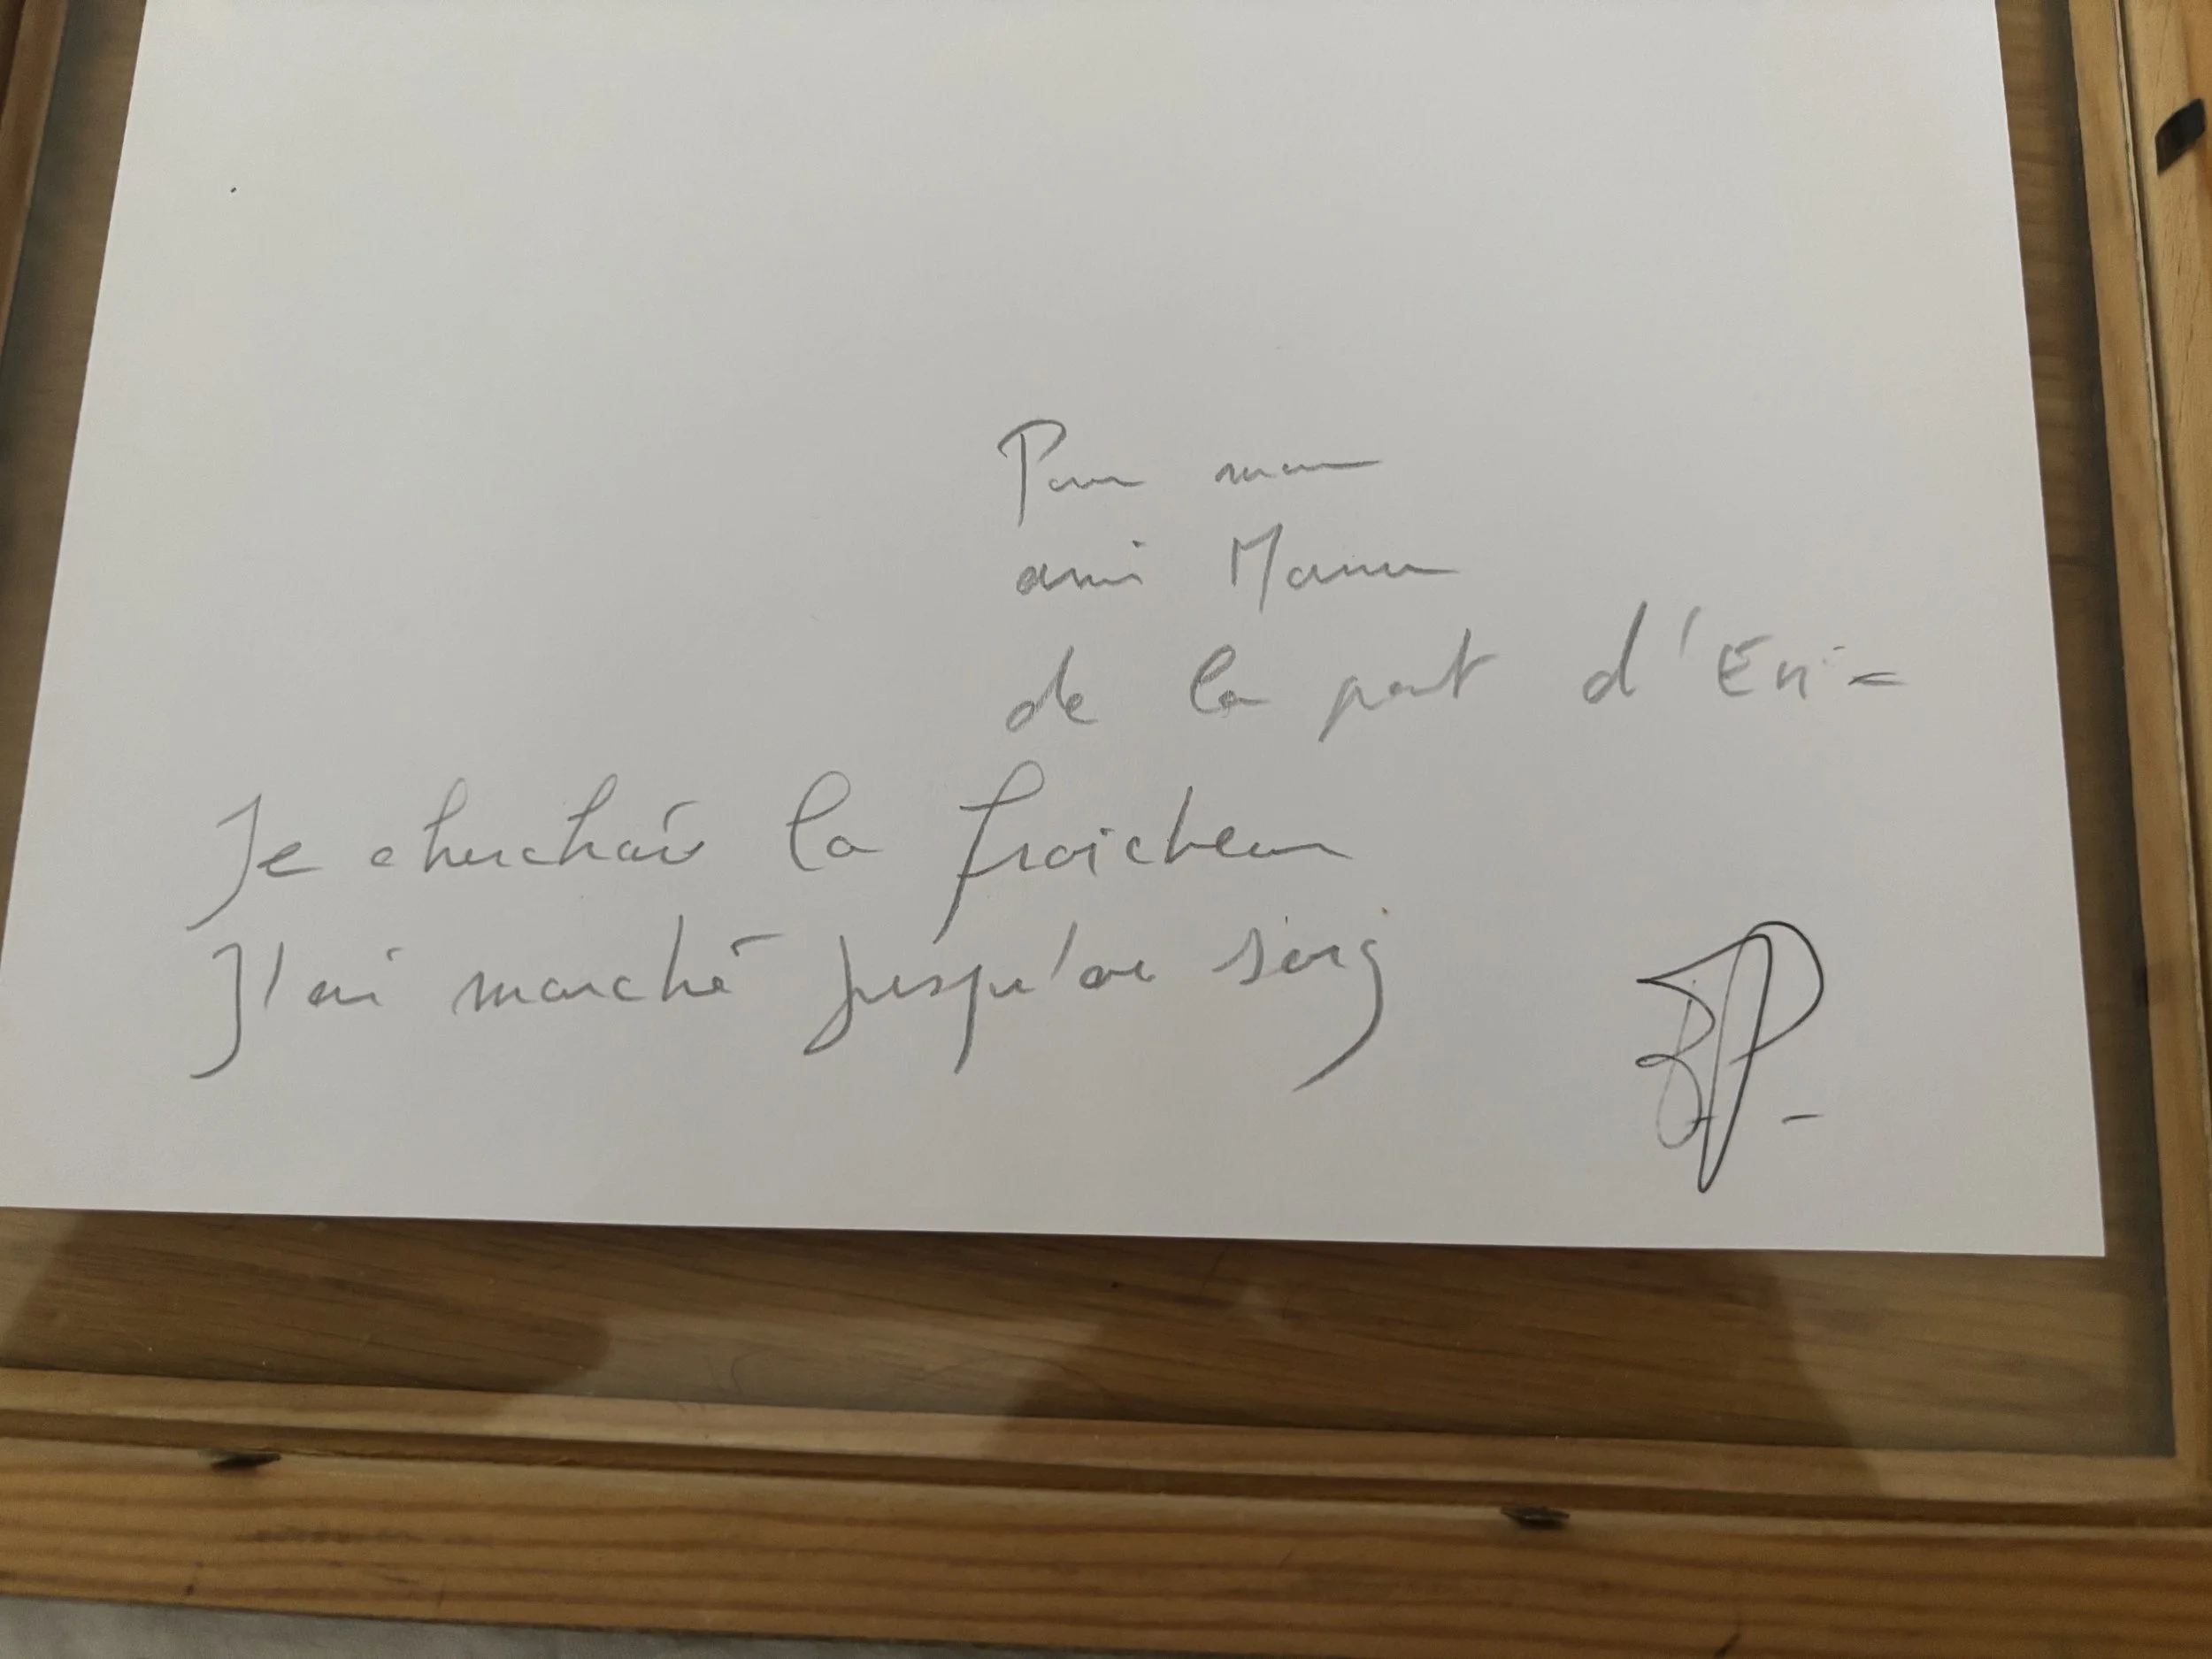 Pour mon
ami Manu
de la part d'Eric
Je cherchais la fraicheur
J'ai marché jusqu'au